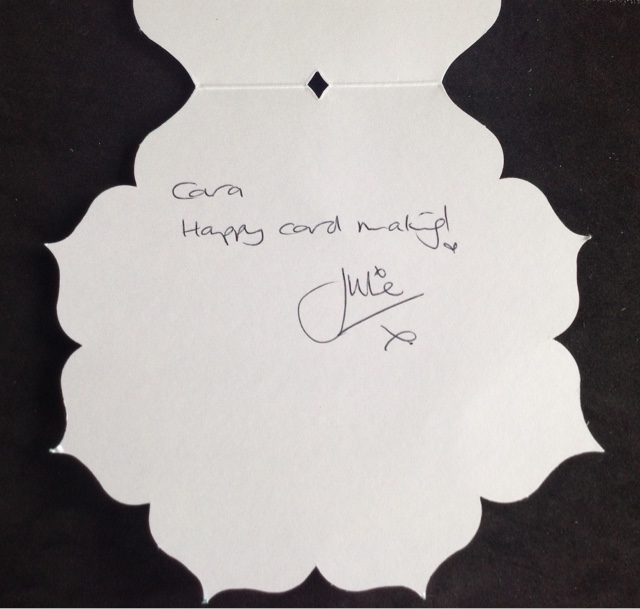 Cara
Happy card making!
Julie
x